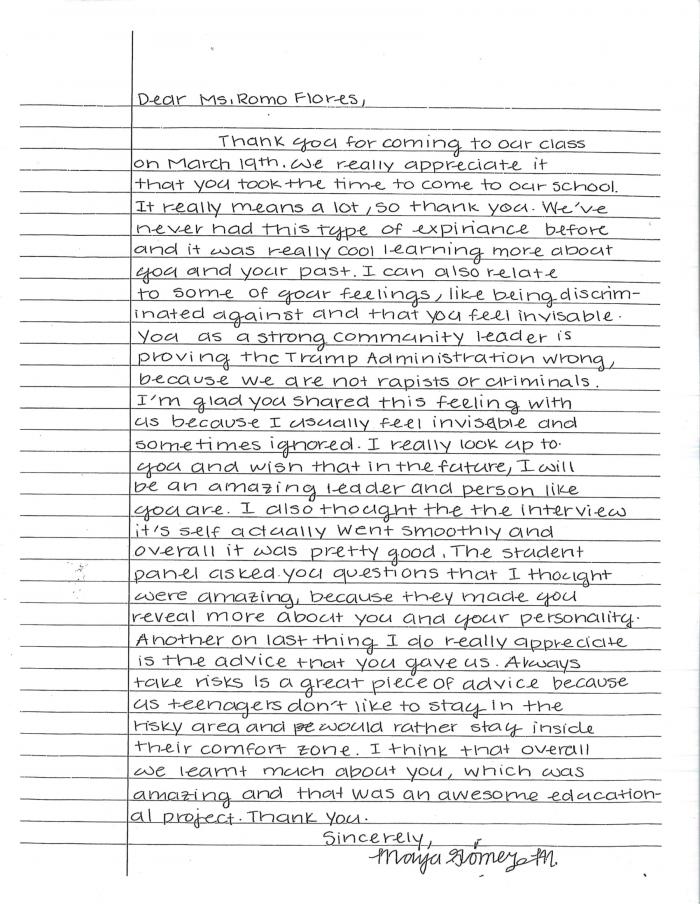 Dear Ms. Romo Flores,
Thank you for coming to our class
on March 19th. We really appreciate it
that you took the time to come to our school.
It really means a lot, so thank you. We've
never had this type of expiriance before
and it was really cool learning more about
you and your past. I can also relate
to some of your feelings, like being discrim-
inated against and that you feel invisable.
You as a strong community leader is
proving the Trump Administration wrong,
because we are not rapists or criminals.
I'm glad you shared this feeling with
us because I usually feel invisable and
sometimes ignored. I really look up to
you and wish that in the future, I will
be an amazing leader and person like
you are. I also thought the the interview
it's self actually went smoothly and
overall it was pretty good. The student
panel asked you questions that I thought
were amazing, because they made you
reveal more about you and your personality.
Another on last thing I do really appreciate
is the advice that you gave us. Always
take risks Is a great piece of advice because
us teenagers don't like to stay in the
risky area and would rather stay inside
their comfort zone. I think that overall
we learnt much about you, which was
amazing and that was an awesome education-
al project. Thank you.
Sincerely,
Maya Gómez M.